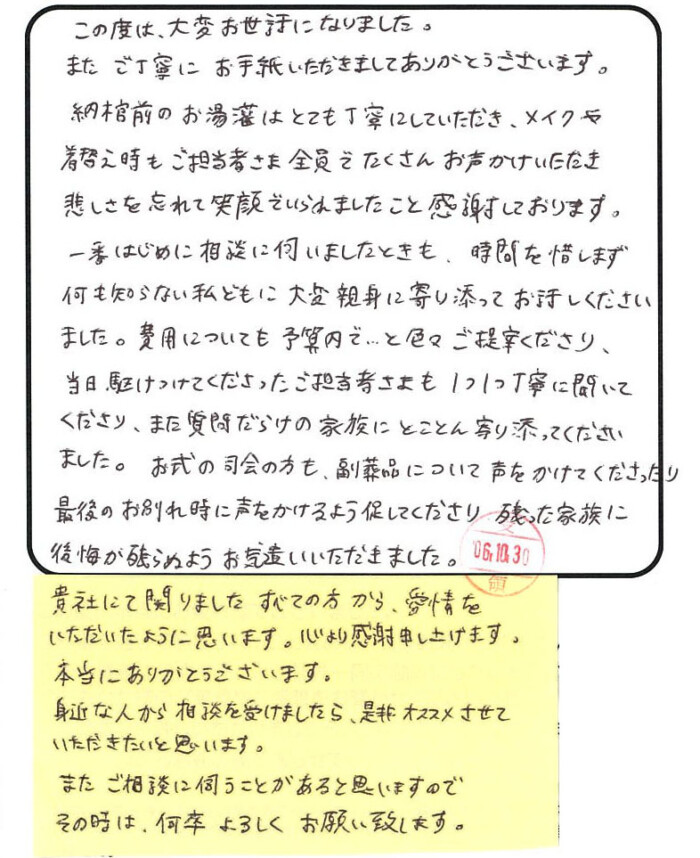 この度は、大変お世話になりました。
また ご丁寧に お手紙いただきましてありがとうございます。
納棺前の お湯灌は とても丁寧にしていただき、メイクや
着替え時も ご担当者さま 全員で たくさん お声かけいただき
悲しさを 忘れて 笑顔でいられましたこと 感謝しております。
一番はじめに 相談に伺いましたときも、時間を惜しまず
何も知らない私どもに 大変 親身に寄り添って お話しください
ました。費用についても 予算内で…と色々 ご提案くださり、
当日 駆けつけてくださったご担当者さまも 1つ1つ丁寧に聞いて
くださり、また質問だらけの 家族に とことん寄り添ってください
ました。 お式の司会の方も、副葬品について 声をかけてくださったり
最後の お別れ時に声をかけるよう促してくださり 残った家族に
後悔が残らぬよう お気遣いいただきました。
受
'06.10.30
領
貴社にて 関りました すべての方 から、愛情を
いただいたように思います。心より感謝申し上げます。
本当にありがとうございます。
身近な人から 相談を受けましたら、是非オススメさせて
いただきたいと思います。
また ご相談に伺うことがあると思いますので
その時は、何卒 よろしく お願い致します。